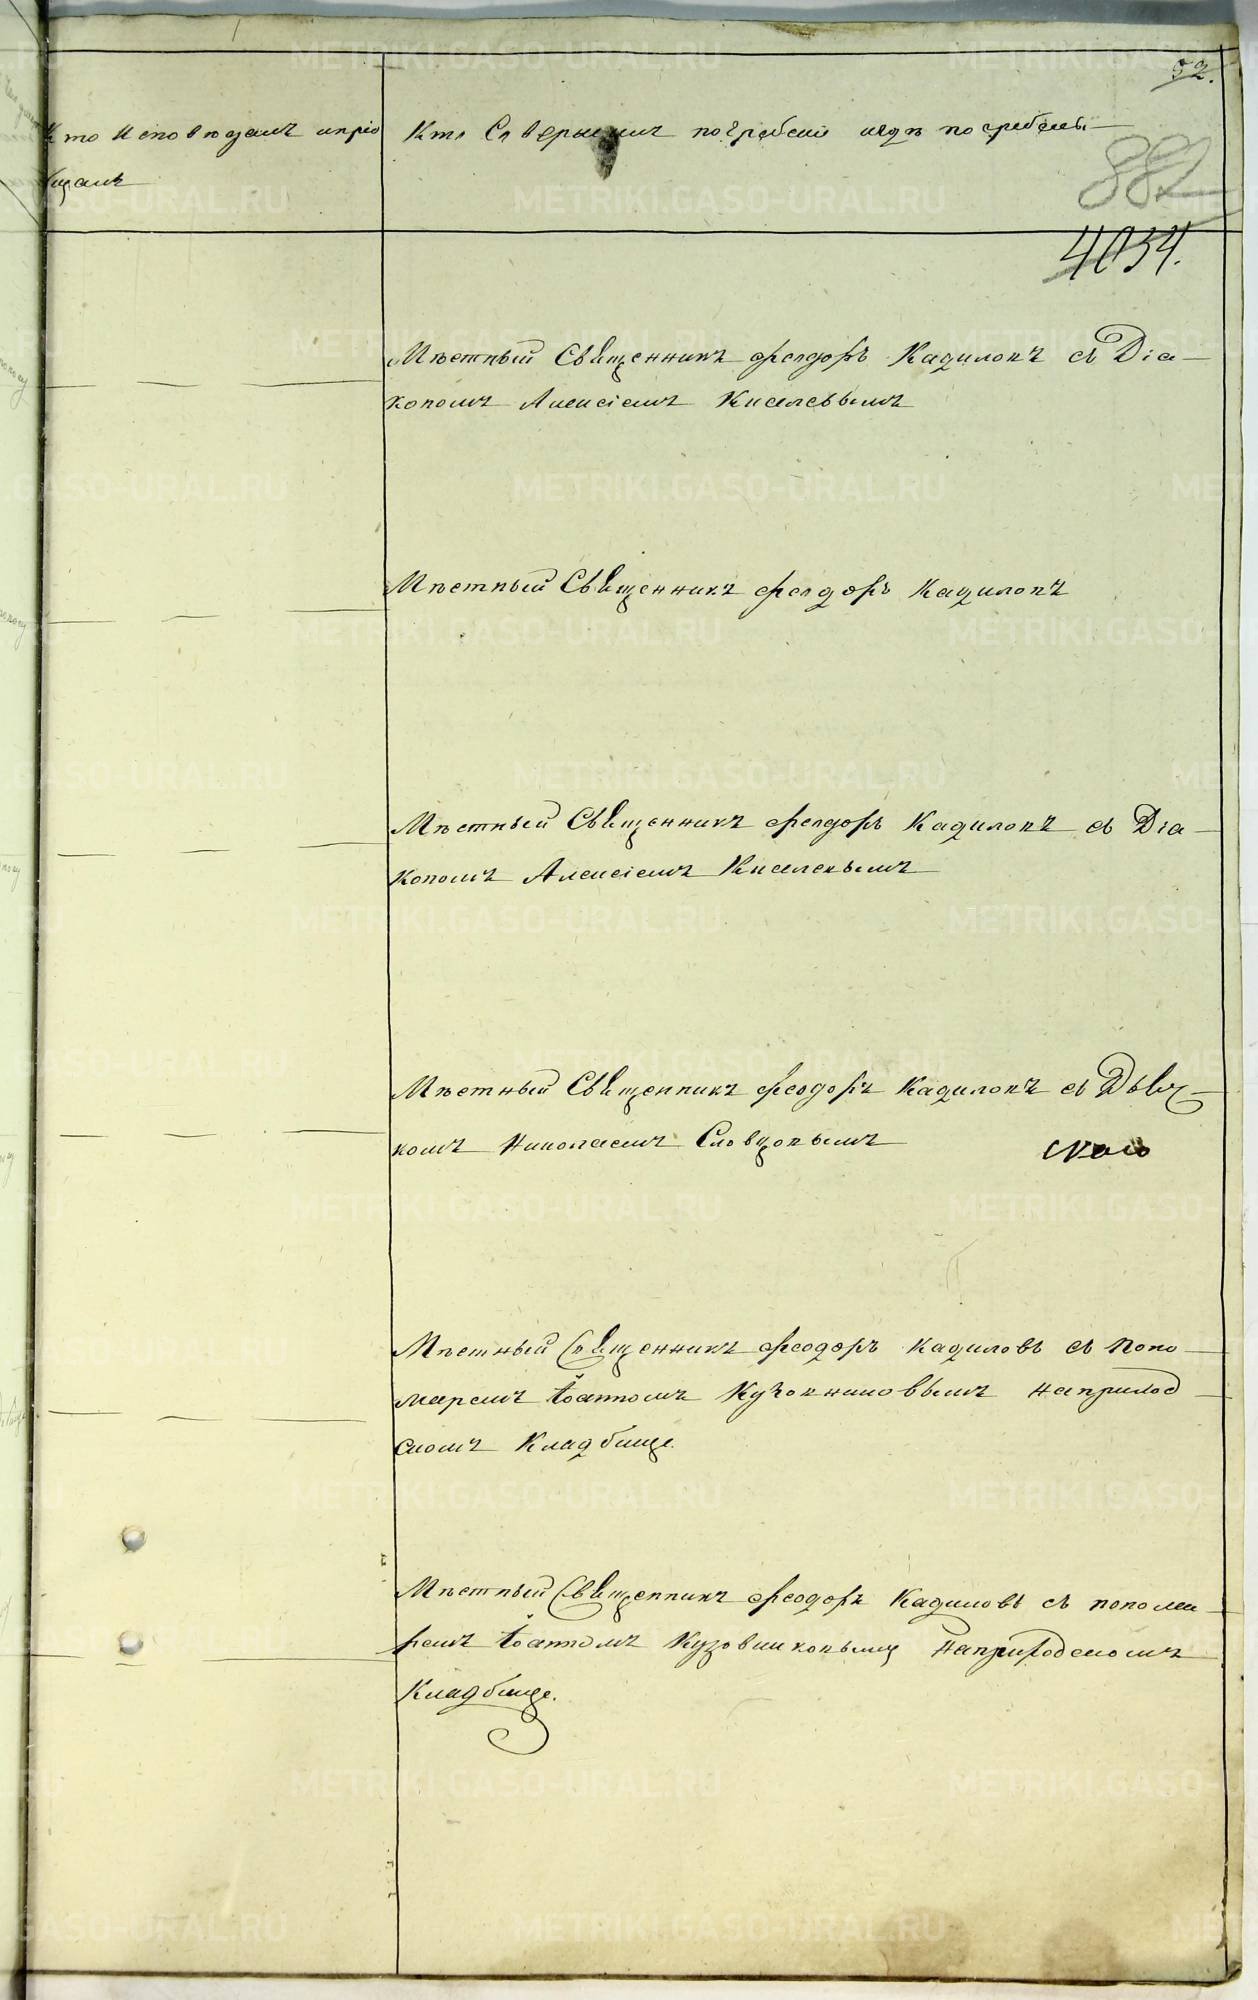 52.
Кто Исповѣдалъ и прiо
бщалъ
Кто Совершилъ погребенiе и гдѣ погребены
882
4034.
Мѣстный Священникъ Феодоръ Кадиловъ съ Дiа-
кономъ Алексiемъ Киселевымъ
Мѣстный Священникъ Феодоръ Кадиловъ
Мѣстный Священникъ Феодоръ Кадиловъ съ Дiа-
кономъ Алексiемъ Киселевымъ
Мѣстный Священникъ Феодоръ Кадиловъ съ Дьяч-
комъ Николаемъ Словцовымъ
Мѣстный Священникъ Феодоръ Кадиловъ съ Поно-
маремъ Iоанномъ Кузовниковымъ на приход-
скомъ Кладбище.
Мѣстный Священникъ Феодоръ Кадиловъ съ понома-
ремъ Iоанномъ Кузовниковымъ на приходскомъ
Кладбище.
METRIKI.GASO-URAL.RU